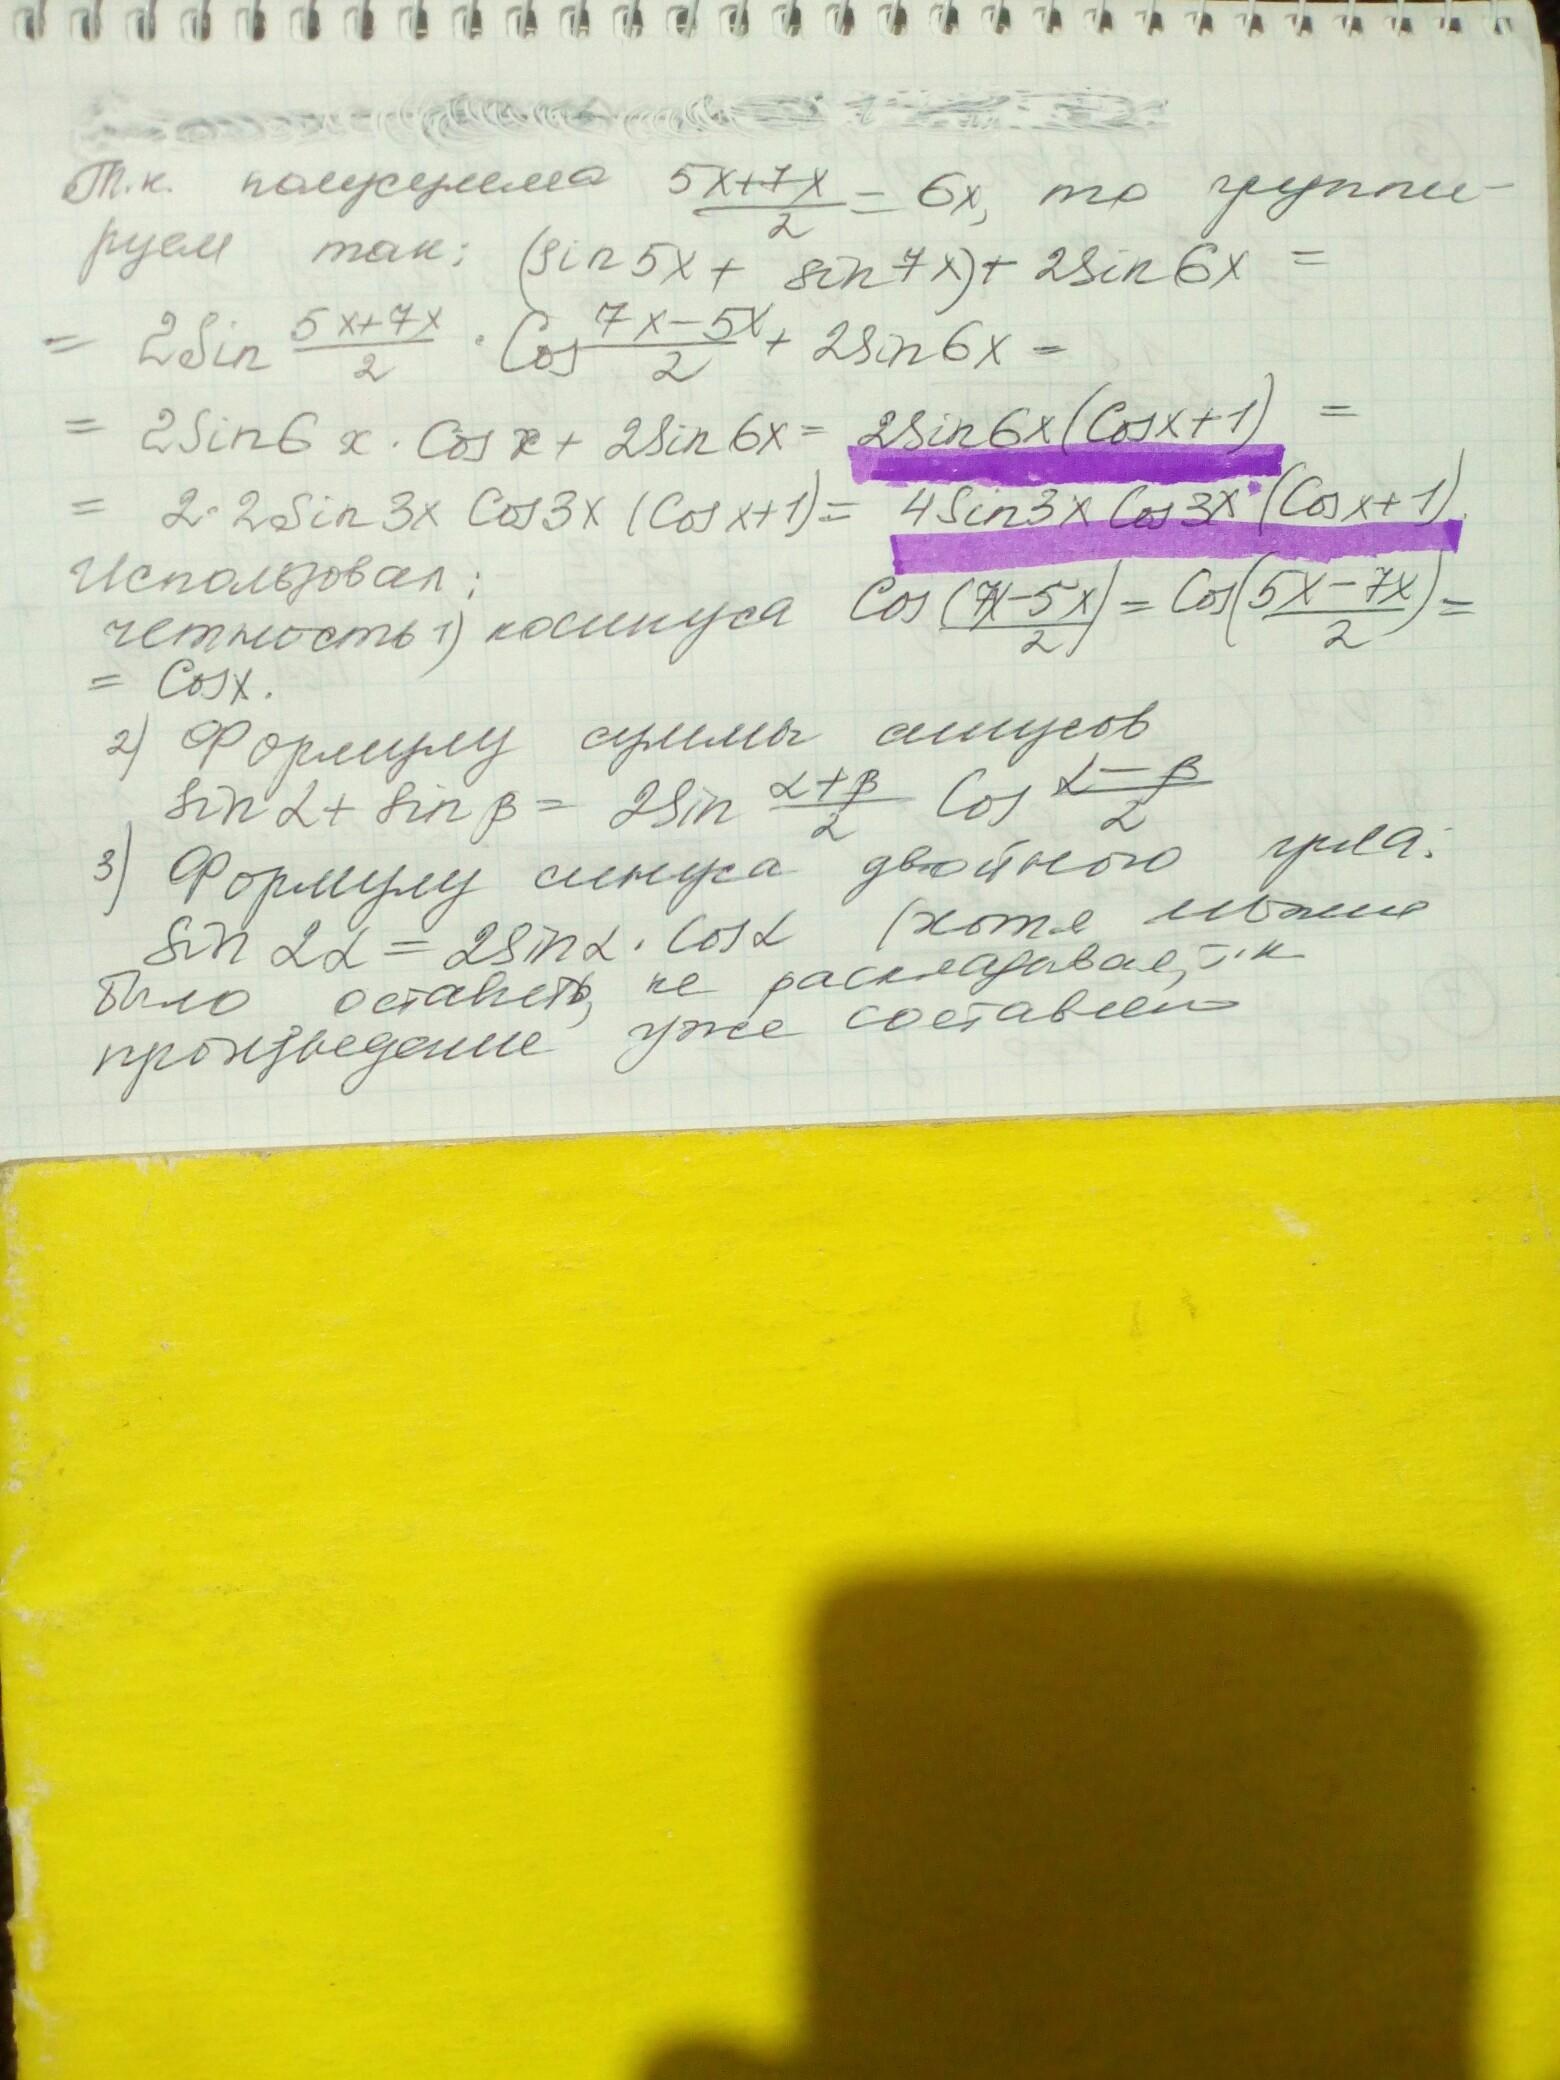 Т.к. полусумма (5x+7x)/2 = 6x, то группи-
руем так: (sin 5x + sin 7x) + 2Sin 6x =
= 2Sin (5x+7x)/2 · Cos (7x-5x)/2 + 2Sin 6x =
= 2Sin 6x · Cos x + 2Sin 6x = 2Sin 6x (Cos x+1) =
= 2·2Sin 3x Cos 3x (Cos x+1) = 4Sin 3x Cos 3x · (Cos x+1).
Использовал:
четность 1) косинуса Cos ((7x-5x)/2) = Cos ((5x-7x)/2) =
= Cos x.
2) Формулу суммы синусов
Sin α + Sin β = 2Sin (α+β)/2 Cos (α-β)/2
3) Формулу синуса двойного угла:
Sin 2α = 2Sin α · Cos α (хотя можно
было оставить, не раскладывая, т.к
произведение уже составлено